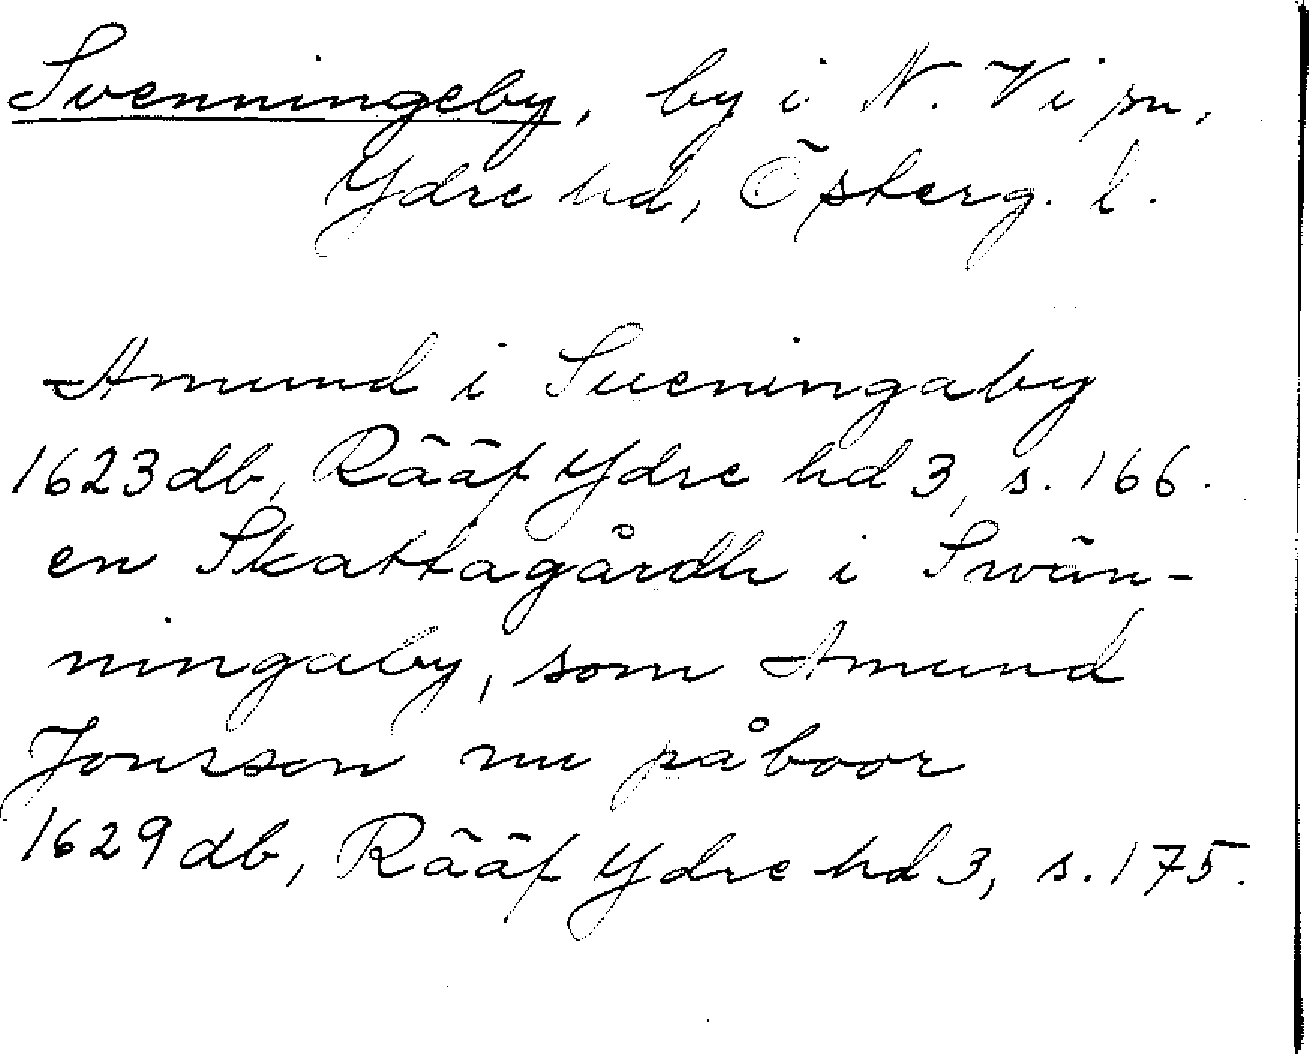 Svenningeby, by i N. Vi sn,
Ydre hd, Österg  l.
Amund i Sueningaby
1623 db, Rääf Ydre hd 3, s. 166.
en Skattagårdh i Swän-
ningaby, som Amund
Jonsson nu påboor
1629 db, Rääf Ydre hd 3, s. 175.